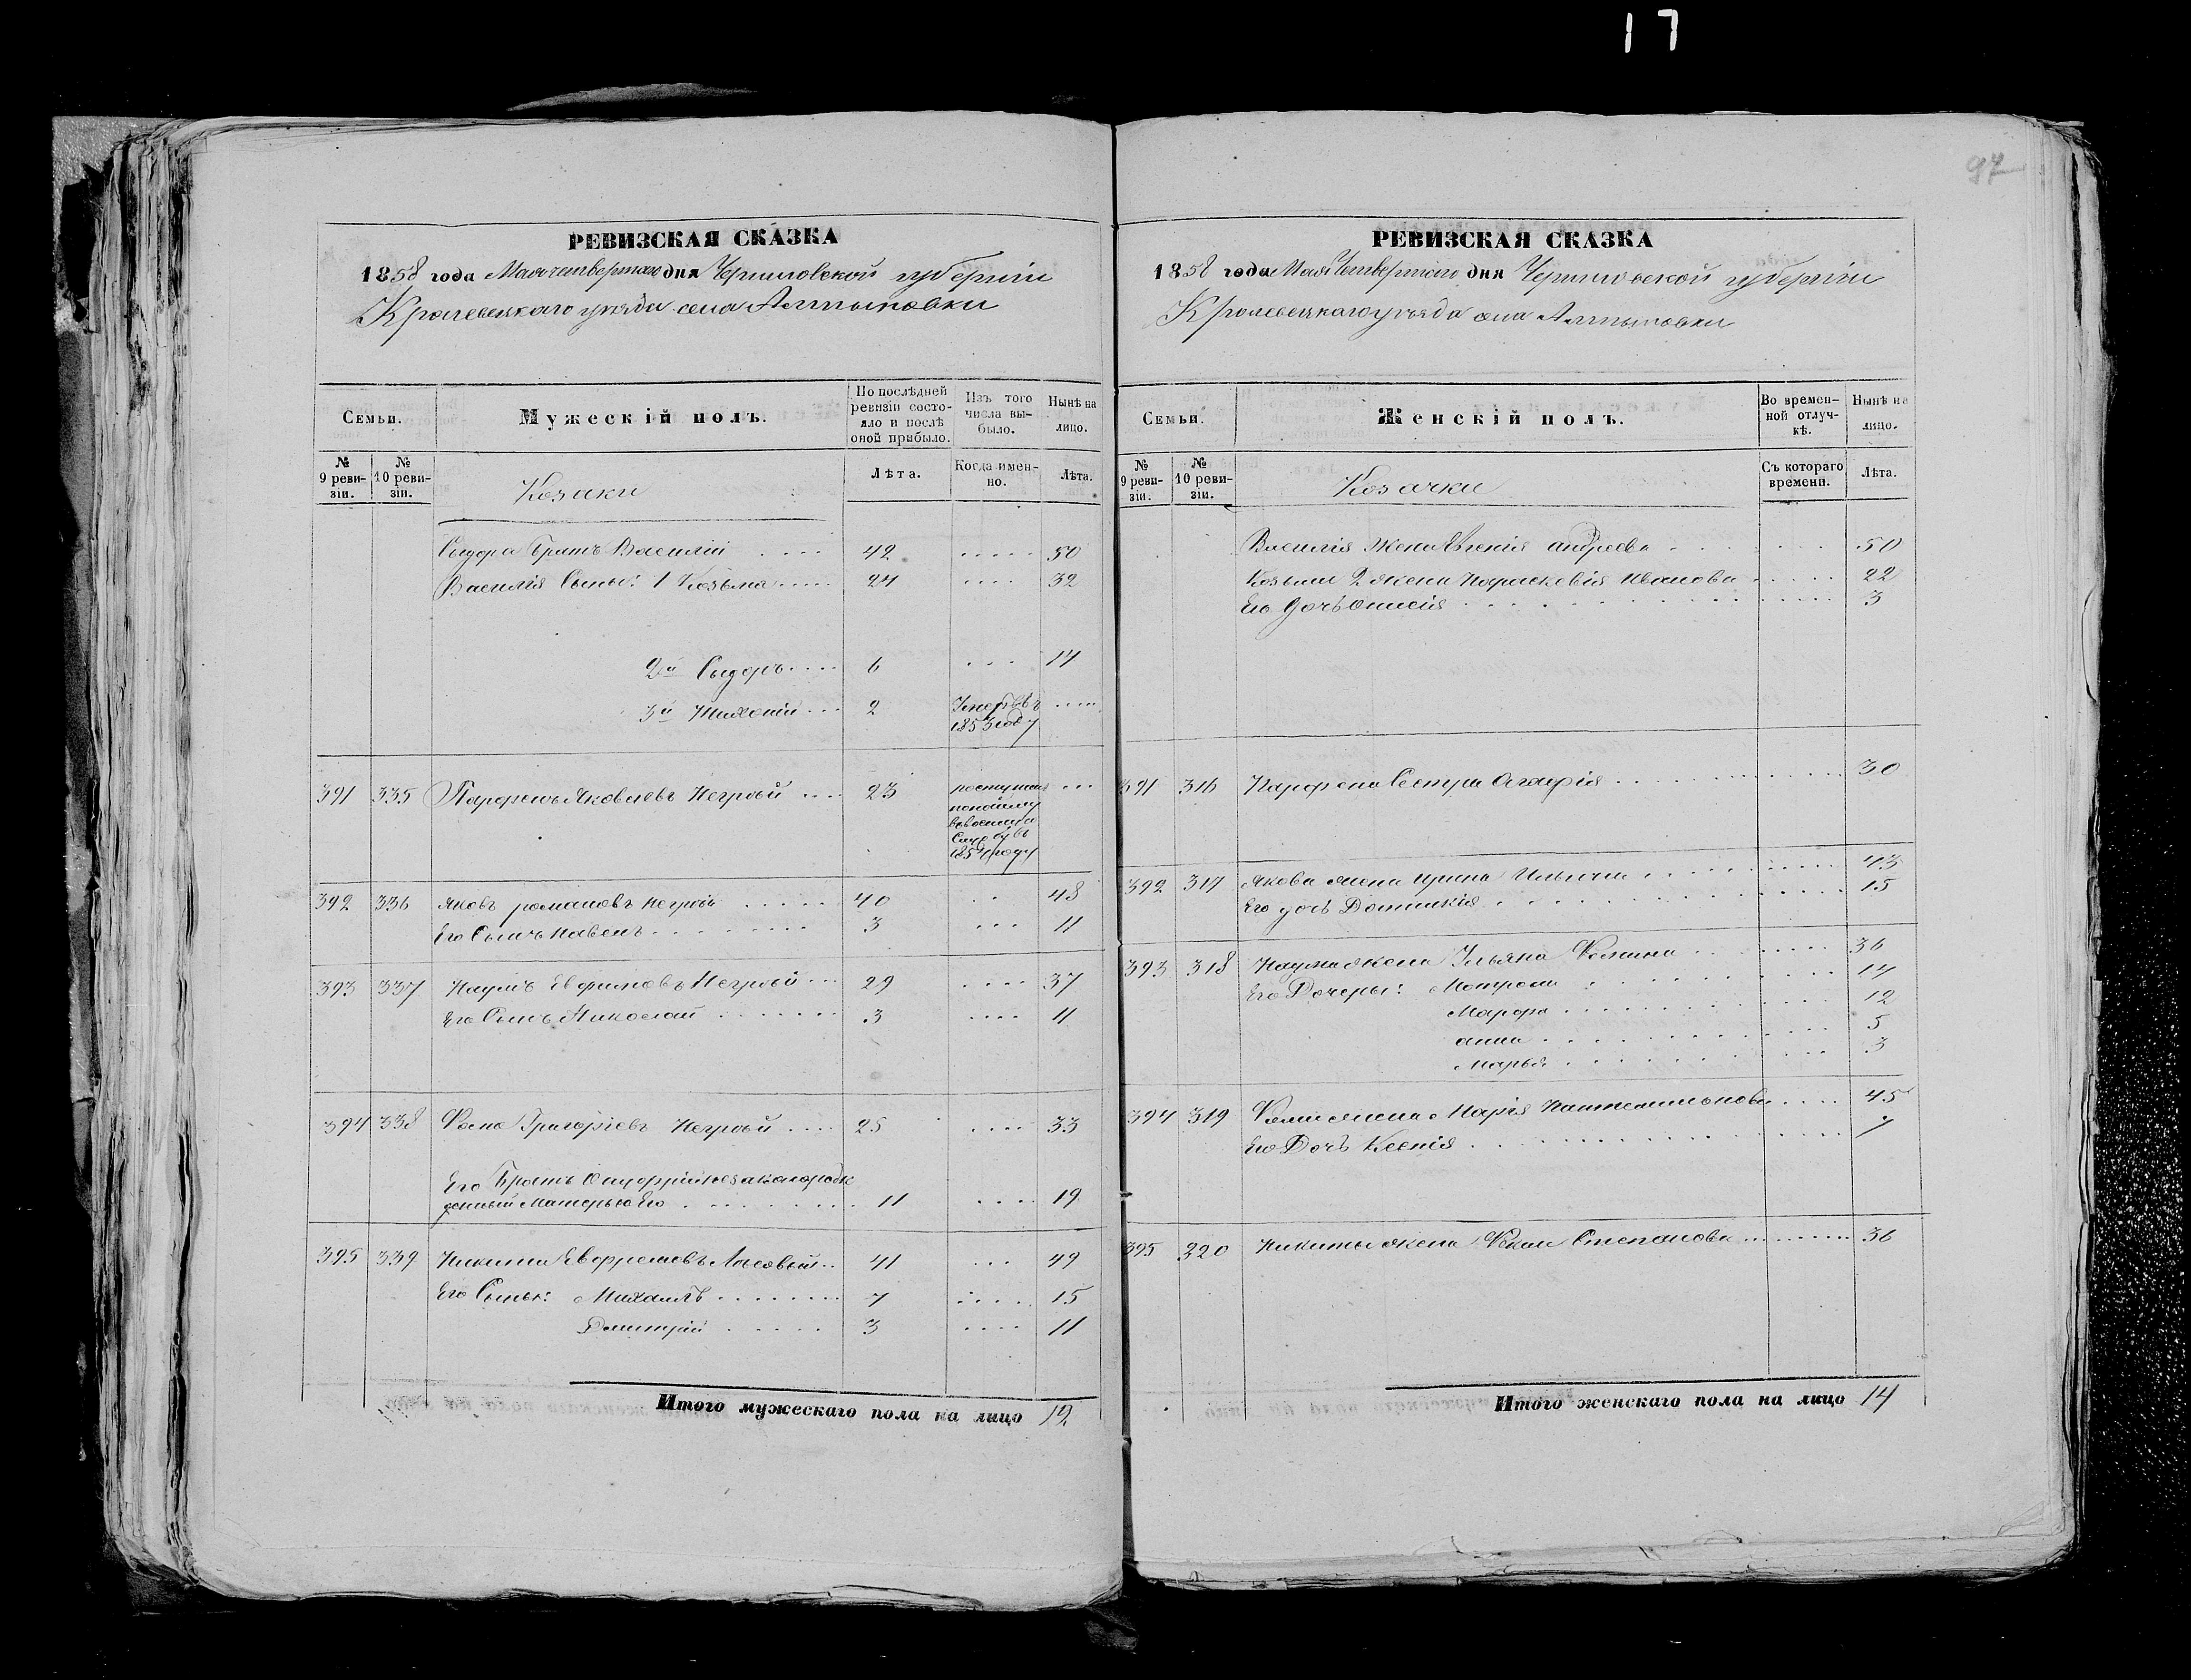 17
97
РЕВИЗСКАЯ СКАЗКА
1858 года Мая четвертаго дня Черниговской губернiи
Кролевецкаго уезда села Алтыновки
Семьи.
Мужескiй полъ.
По послѣдней ревизiи состо-
яло и послѣ
оной прибыло.
Изъ того
числа вы-
было.
Нынѣ на
лицо.
№
9 реви-
зiи.
№
10 реви-
зiи.
Козаки
Лѣта.
Когда имен-
но.
Лѣта.
Сидора Братъ Василiй 42 50
Василiя Сыны: 1 Козьма 24 32
2й Сидоръ 6 14
3й 2 Умеръ въ
1853 году
391 335 Парфенъ Яковлевъ Негрый 23
1854 году
392 336 Яковъ Романовъ Негрый 40 48
Его Сынъ Павелъ 3 11
393 337 Наумъ Ефимовъ Негрый 29 37
Его Сынъ Николай 3 11
394 338 Фома Григорiевъ Негрый 25 33
Его Братъ Онуфрiй
Матерью Его 11 19
395 339 Никита Евфремовъ Лысовый 41 49
Его Сыны: Михаилъ 7 15
Дмитрiй 3 11
Итого мужескаго пола на лицо 12.
РЕВИЗСКАЯ СКАЗКА
1858 года Мая Четвертаго дня Черниговской губернiи
Кролевецкаго уезда села Алтыновки
Семьи.
Женскiй полъ.
Во времен-
ной отлуч-
кѣ.
Нынѣ на
лицо.
№
9 реви-
зiи.
№
10 реви-
зiи.
Козачки
Съ котораго
времени.
Лѣта.
Василiя Жена Евгенiя андреева 50
Козьмы 2 жена Параскевiя Иванова 22
Его Дочь Онисiя 3
391 316 Парфена Сестра Агафiя 30
392 317 Якова жена Ирина Ильина 43
Его дочь Домникiя 15
393 318 Наума жена Ульяна Фомина 36
Его Дочеры: Матрона 14
Марфа 12
анна 5
Марья 3
394 319 Фомы жена Марiя Пантелимонова 45
Его Дочь Ксенiя 7
395 320 Никиты жена Фекла Степанова 36
Итого женскаго пола на лицо 14